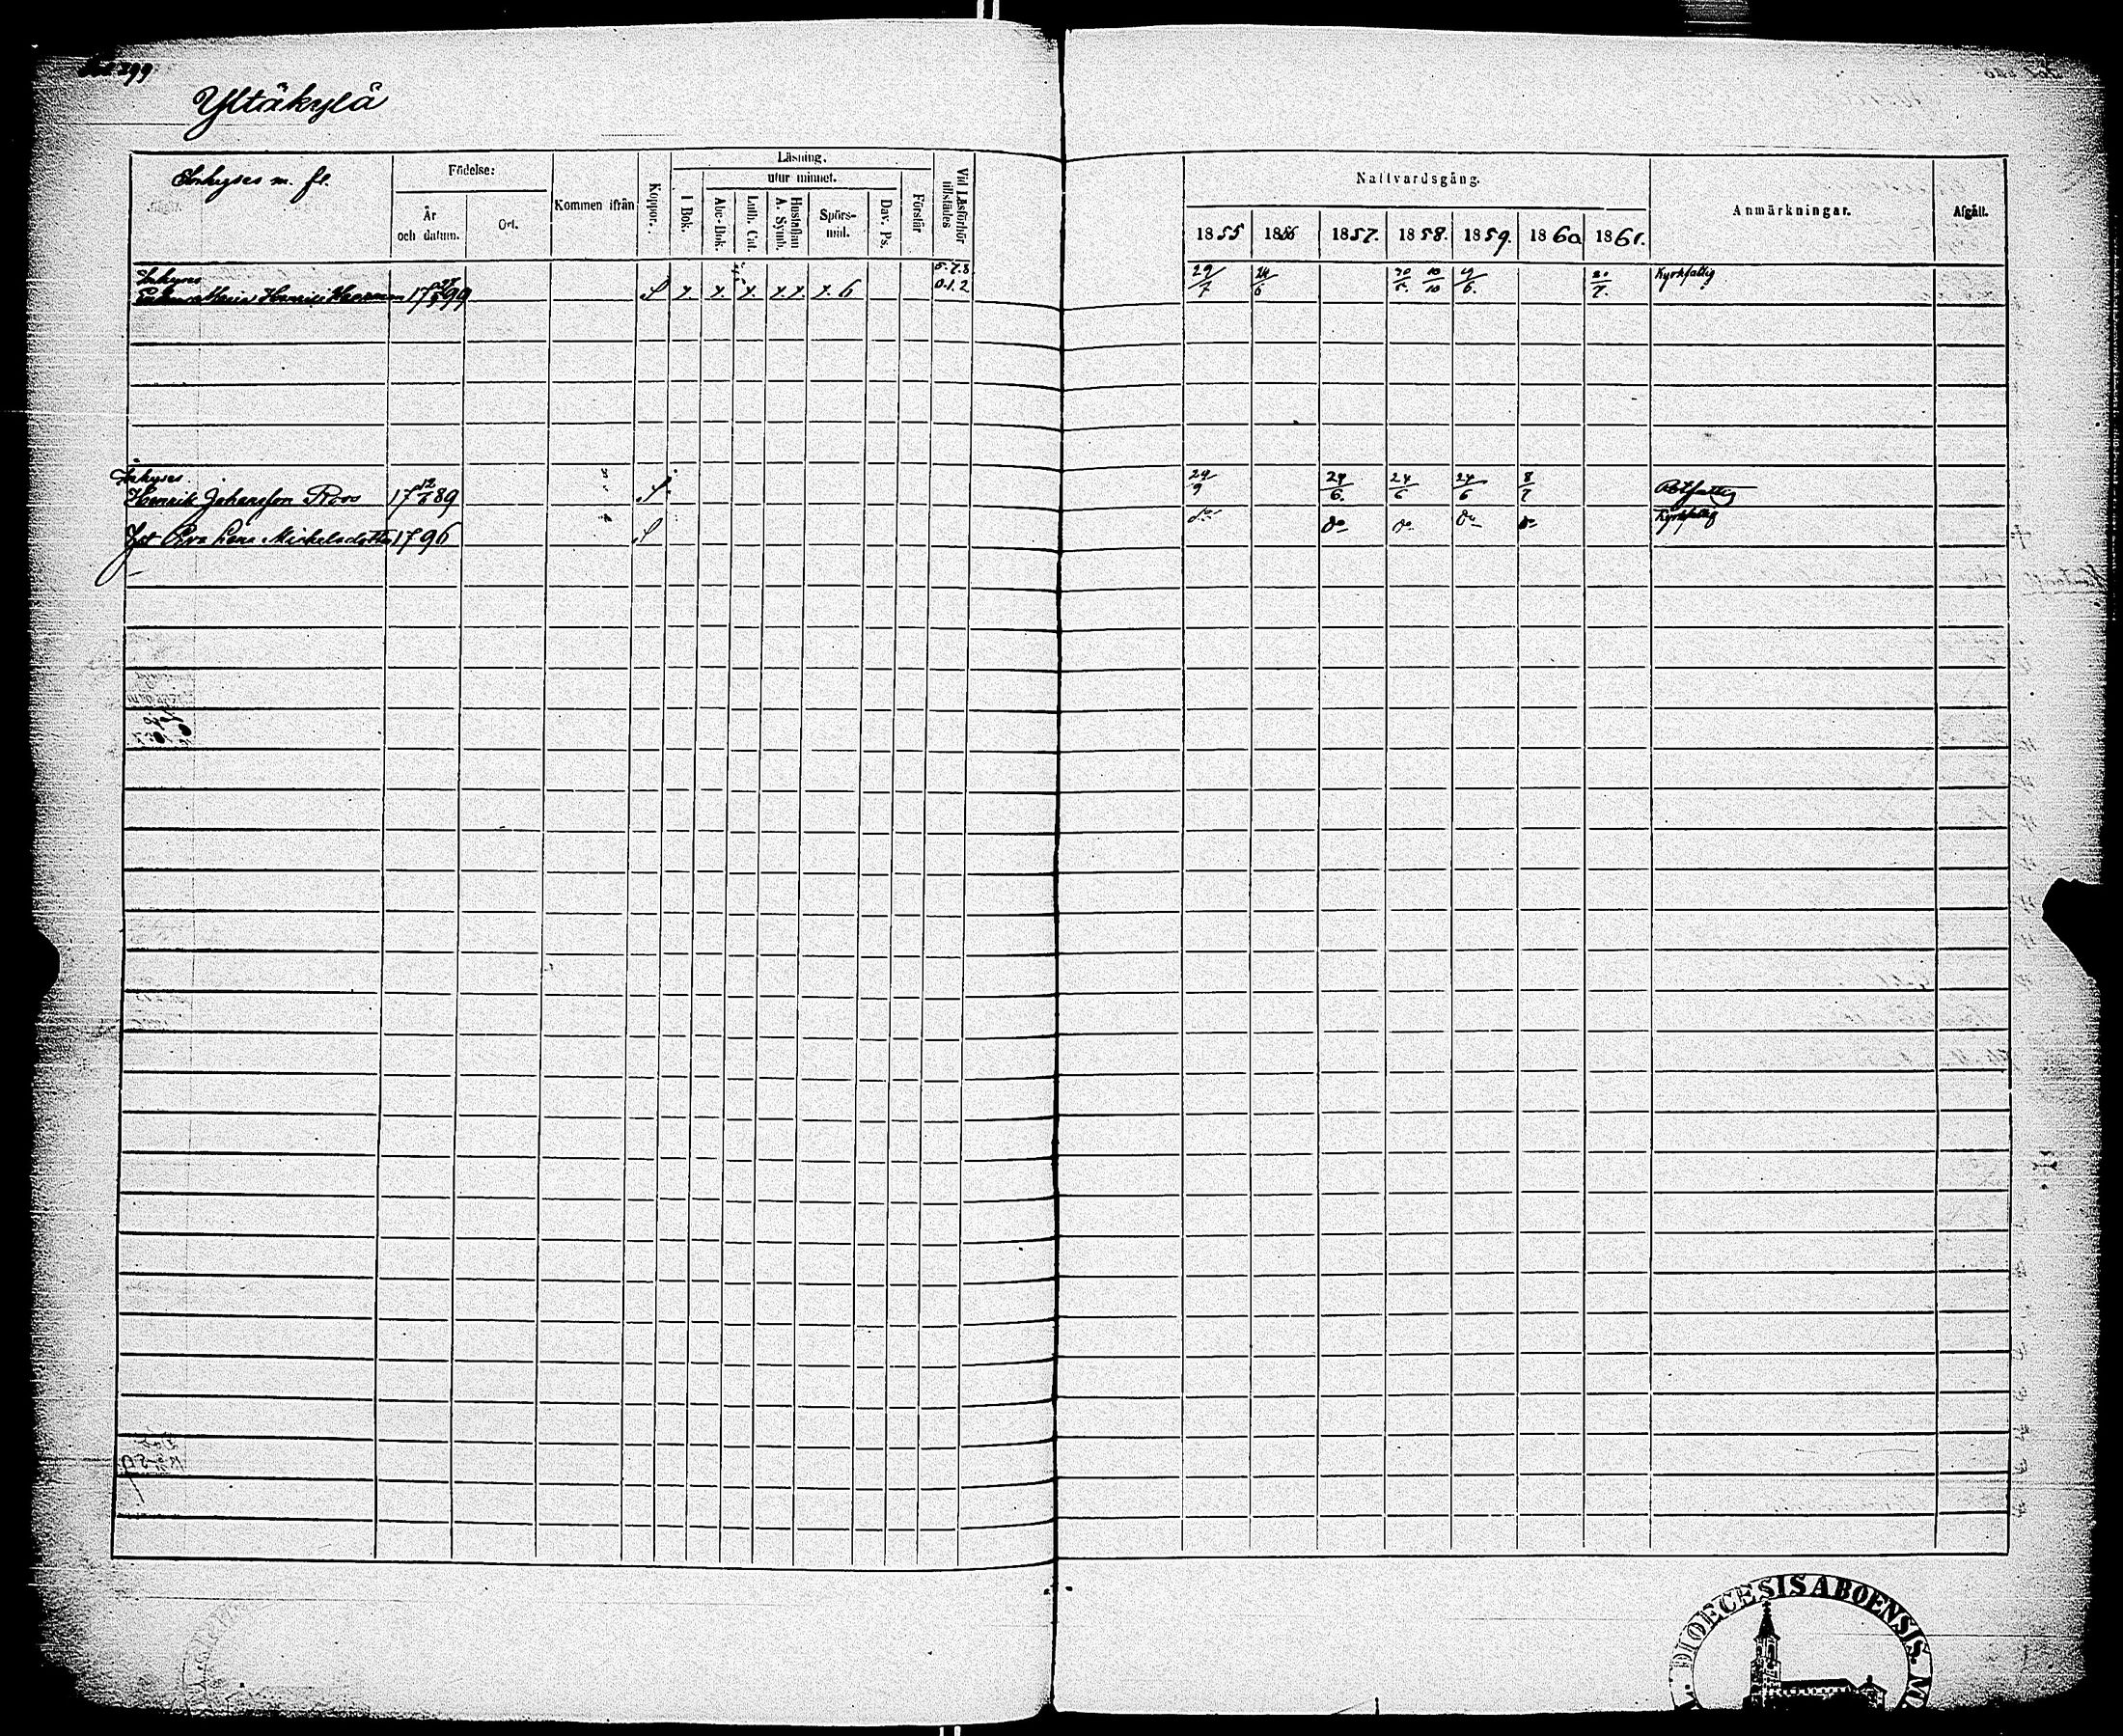 299
Yltäkylä
Inhyses m. fl.
Födelse:
År och datum.
Ort.
Kommen ifrån
Koppor.
Läsning.
utur minnet.
I Bok.
Abc-Bok.
Luth. Cat.
Hustaflan A. Symb.
Spörs-mål.
Dav. Ps.
Förstår
Vid Läsförhör tillstädes
Nattvardsgång.
1855 1856 1857. 1858. 1859. 1860 1861.
Anmärkningar.
Afgått.
Inhyses
Maria Henrics 17 27/5 99 S x. x. x. x. x. x. 6 5.7.8 0.1.2 29/7 24/6 20/6. 10/10 4/6. 21/7. Kyrkfattig
Inhyses
Henrik Johansson Roos 17 12/6 89 S 29/9 29/6. 24/6 24/6 8/7 Rotfattig
Hst Eva Lena Michelsdotter 1796 S do do do do do Kyrkfattig
DIOECESIS ABOENSIS. M